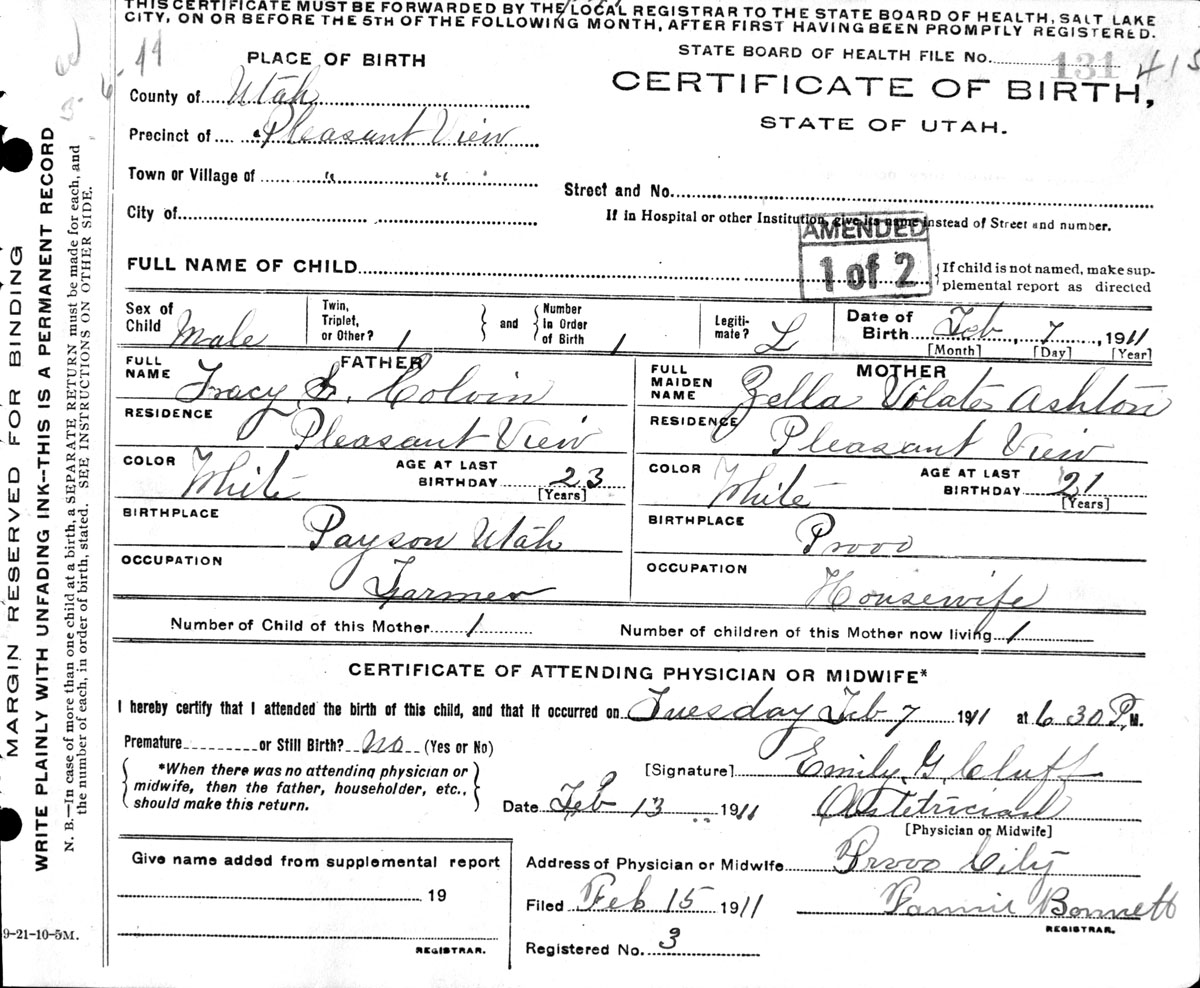 THIS CERTIFICATE MUST BE FORWARDED BY THE LOCAL REGISTRAR TO THE STATE BOARD OF HEALTH, SALT LAKE
CITY, ON OR BEFORE THE 5TH OF THE FOLLOWING MONTH, AFTER FIRST HAVING BEEN PROMPTLY REGISTERED.
STATE BOARD OF HEALTH FILE No. 131 415
PLACE OF BIRTH
CERTIFICATE OF BIRTH,
STATE OF UTAH.
County of Utah
Precinct of Pleasant View
Town or Village of " "
Street and No.
City of
If in Hospital or other Institution, give its name instead of Street and number.
AMENDED
1 of 2
FULL NAME OF CHILD
If child is not named, make sup-
plemental report as directed
Sex of Child Male
Twin, Triplet, or Other? 1
and
Number in Order of Birth 1
Legiti-mate? L
Date of Birth Feb 7, 1911
[Month] [Day] [Year]
FATHER
FULL NAME Tracy L. Colvin
RESIDENCE Pleasant View
COLOR White AGE AT LAST BIRTHDAY 23
[Years]
BIRTHPLACE Payson Utah
OCCUPATION Farmer
MOTHER
FULL MAIDEN NAME Zella Volate Ashton
RESIDENCE Pleasant View
COLOR White AGE AT LAST BIRTHDAY 21
[Years]
BIRTHPLACE Provo
OCCUPATION Housewife
Number of Child of this Mother 1 Number of children of this Mother now living 1
CERTIFICATE OF ATTENDING PHYSICIAN OR MIDWIFE*
I hereby certify that I attended the birth of this child, and that it occurred on Tuesday Feb 7 1911 at 6 30 P.M.
Premature or Still Birth? no (Yes or No)
*When there was no attending physician or
midwife, then the father, householder, etc.,
should make this return.
[Signature] Emily G. Cluff
Date Feb 13 1911 Obstetrician
[Physician or Midwife]
Give name added from supplemental report
19
REGISTRAR.
Address of Physician or Midwife Provo City
Filed Feb 15 1911 Fannie Bonnett
REGISTRAR.
Registered No. 3
9-21-10-5M.
MARGIN RESERVED FOR BINDING
WRITE PLAINLY WITH UNFADING INK--THIS IS A PERMANENT RECORD
N. B.—In case of more than one child at a birth, a SEPARATE RETURN must be made for each, and
the number of each, in order of birth, stated. SEE INSTRUCTIONS ON OTHER SIDE.